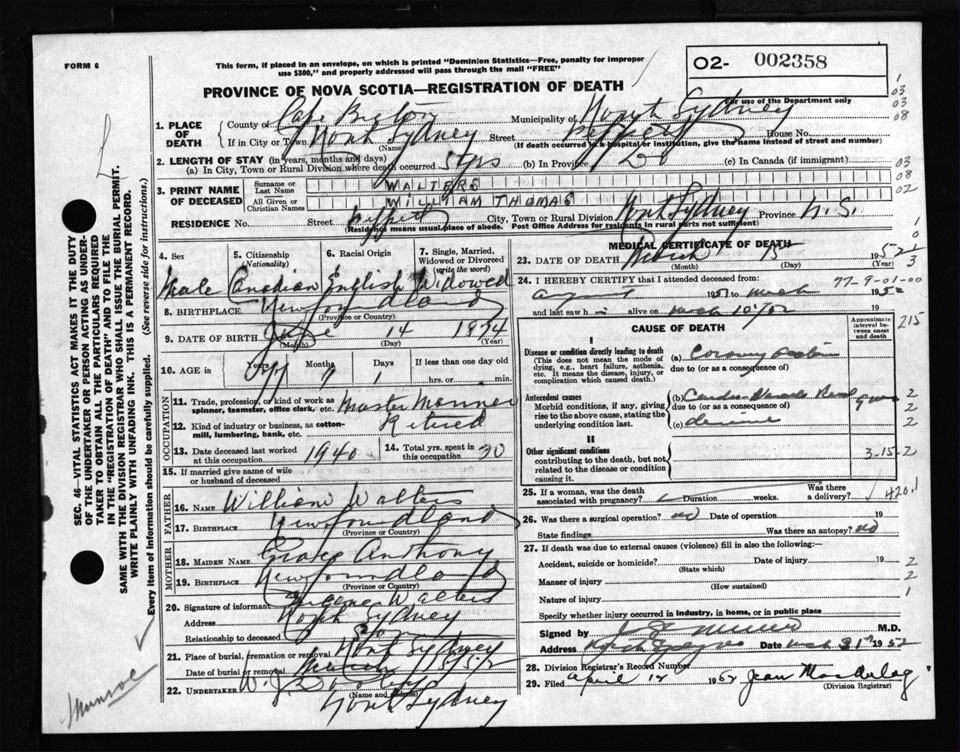 FORM 6
This form, if placed in an envelope, on which is printed "Dominion Statistics—Free, penalty for improper
use $300," and properly addressed will pass through the mail "FREE"
O2- 002358
For use of the Department only
PROVINCE OF NOVA SCOTIA—REGISTRATION OF DEATH
1. PLACE OF DEATH
County of Cape Breton Municipality of North Sydney
If in City or Town North Sydney Street House No.
(Name) (If death occurred in a hospital or institution, give the name instead of street and number)
2. LENGTH OF STAY (in years, months and days)
(a) In City, Town or Rural Division where death occurred 59 yrs (b) In Province (c) In Canada (if immigrant)
3. PRINT NAME OF DECEASED
Surname or Last Name WALTERS
All Given or Christian Names WILLIAM THOMAS
RESIDENCE No. Street City, Town or Rural Division North Sydney Province N.S.
(Residence means usual place of abode. Post Office Address for residents in rural parts not sufficient)
4. Sex Male
5. Citizenship (Nationality) Canadian
6. Racial Origin English
7. Single, Married, Widowed or Divorced (write the word) Widowed
8. BIRTHPLACE Newfoundland
(Province or Country)
9. DATE OF BIRTH June 14 1874
(Month) (Day) (Year)
10. AGE Years Months Days If less than one day old
77 9 1 hrs. or min.
OCCUPATION
11. Trade, profession, or kind of work as spinner, teamster, office clerk, etc. Master Mariner
12. Kind of industry or business, as cotton-mill, lumbering, bank, etc. Retired
13. Date deceased last worked at this occupation 1940
14. Total yrs. spent in this occupation 30
15. If married give name of wife or husband of deceased
FATHER
16. Name William Walters
17. Birthplace Newfoundland
(Province or Country)
MOTHER
18. MAIDEN NAME Anthony
19. Birthplace Newfoundland
(Province or Country)
20. Signature of informant Walters
Address North Sydney
Relationship to deceased
21. Place of burial, cremation or removal North Sydney
Date of burial or removal March
22. UNDERTAKER W. J.
(Name and address)
North Sydney
MEDICAL CERTIFICATE OF DEATH
23. DATE OF DEATH March 15 1952
(Month) (Day)
24. I HEREBY CERTIFY that I attended deceased from: 77-9-01-00
August 1951 to March 1952
and last saw h im alive on March 10/52
CAUSE OF DEATH
Approximate interval between onset and death
I
Disease or condition directly leading to death
(This does not mean the mode of dying, e.g., heart failure, asthenia, etc. It means the disease, injury, or complication which caused death.)
(a) Coronary
due to (or as a consequence of)
Antecedent causes
Morbid conditions, if any, giving rise to the above cause, stating the underlying condition last.
(b) Cardio Vascular Renal
due to (or as a consequence of)
(c) disease
II
Other significant conditions
contributing to the death, but not related to the disease or condition causing it.
3-15-2
25. If a woman, was the death associated with pregnancy? Duration weeks. Was there a delivery? 420.1
26. Was there a surgical operation? no Date of operation 19
State findings Was there an autopsy? no
27. If death was due to external causes (violence) fill in also the following:—
Accident, suicide or homicide? Date of injury 19
(State which)
Manner of injury
(How sustained)
Nature of injury
Specify whether injury occurred in industry, in home, or in public place
Signed by M.D.
Address Date March 31st 1952
28. Division Registrar's Record Number
29. Filed April 12 1952 Jean
(Division Registrar)
SEC. 46—VITAL STATISTICS ACT MAKES IT THE DUTY
OF THE UNDERTAKER OR PERSON ACTING AS UNDER-
TAKER TO OBTAIN ALL THE PARTICULARS REQUIRED
IN THE "REGISTRATION OF DEATH" AND TO FILE THE
SAME WITH THE DIVISION REGISTRAR WHO SHALL ISSUE THE BURIAL PERMIT.
WRITE PLAINLY WITH UNFADING INK. THIS IS A PERMANENT RECORD.
Every item of information should be carefully supplied. (See reverse side for instructions.)
Munroe
1
03
03
08
03
08
02
1
0
3
215
2
2
2
2
2
1